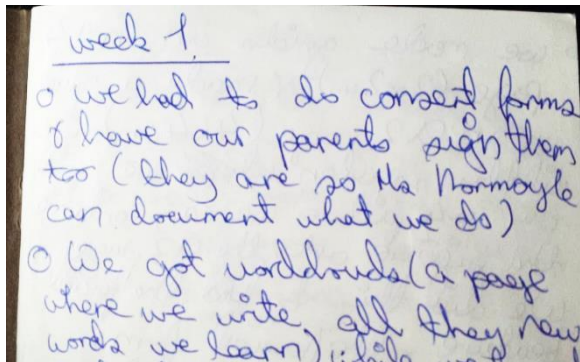 week 1.
o we had to do consent forms
& have our parents sign them
too (they are so Ms Normoyle
can document what we do)
o We got wordclouds (a page
where we write, all they new
words we learn)